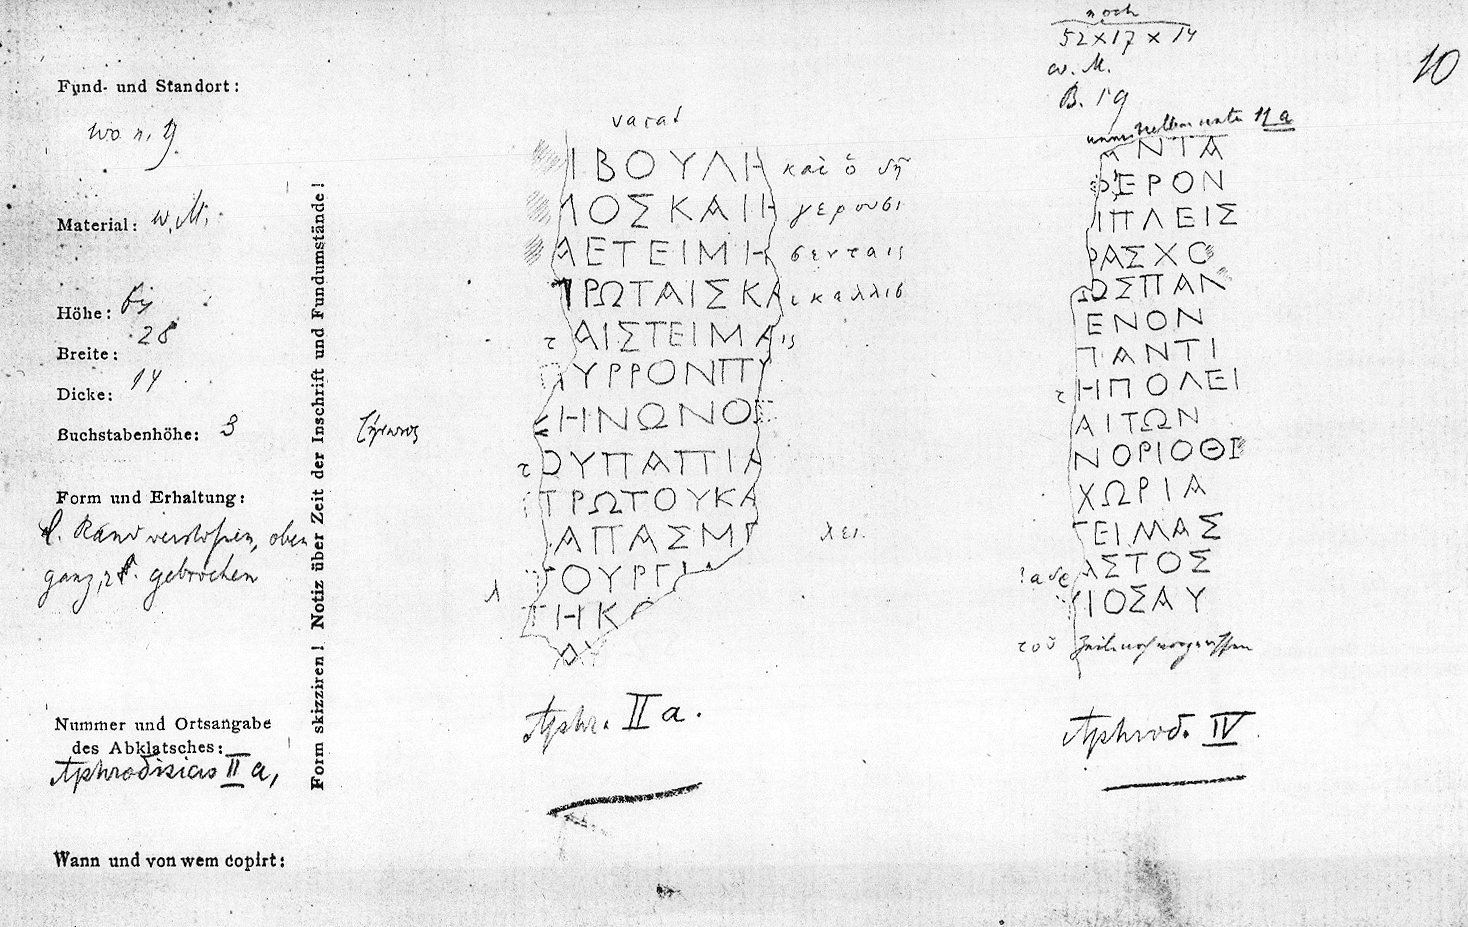 noch
52 x 17 x 14
w. M.
B. 19
10
Fund- und Standort:
wo n. 9
Material: w. M.
Höhe:
Breite: 28
Dicke: 14
Buchstabenhöhe: 3
Form und Erhaltung:
l. Rand verstoßen, oben
ganz, r. gebrochen
Nummer und Ortsangabe
des Abklatsches:
Aphrodisias II a,
Wann und von wem copirt:
Form skizziren! Notiz über Zeit der Inschrift und Fundumstände!
vacat
ΙΒΟΥΛΗ καὶ ὁ δῆ
ΛΟΣΚΑΙΗ γερουσι
ΑΕΤΕΙΜΗ σενταις
ΠΡΩΤΑΙΣΚΑ ι καλλισ
τ ΑΙΣΤΕΙΜΑ ις
ΠΥΡΡΟΝΠΥ
ΖΗΝΩΝΟΣ
Ζήνωνος
τ ΟΥΠΑΠΠΙΑ
ΠΡΩΤΟΥΚΑ
ΑΠΑΣΜΓ λει.
λ ΤΟΥΡΓΙΑ
ΤΗΚΟ
ΑΥ
Aphr. II a.
unter 11 a
ΑΝΤΑ
ΦΕΡΟΝ
ΙΠΛΕΙΣ
ΡΑΣΧΟ
ΩΣΠΑΝ
ΕΝΟΝ
ΠΑΝΤΙ
τ ΗΠΟΛΕΙ
ΑΙΤΩΝ
ΝΟΡΙΟΘΕ
ΧΩΡΙΑ
ΤΕΙΜΑΣ
ΑΣΤΟΣ
ΥΙΟΣΑΥ
τοῦ
Aphrod. IV